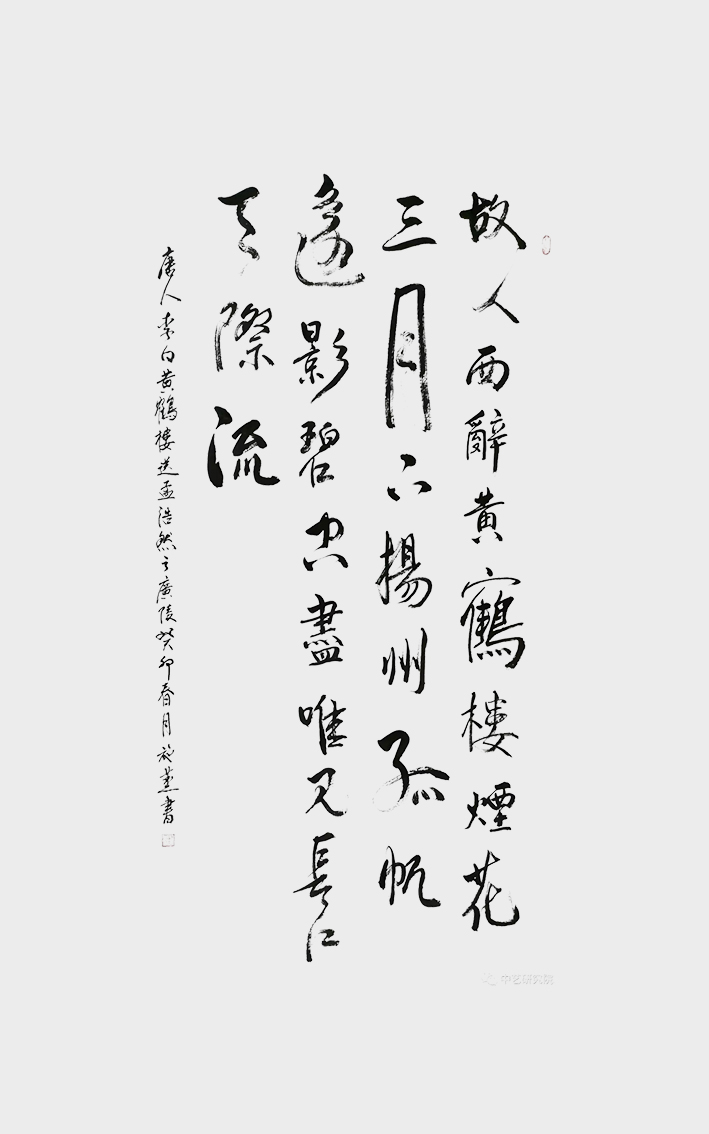 故人西辭黄鶴樓煙花
三月下揚州孤帆
遠影碧空盡唯見長江
天際流
唐人李白黄鶴樓送孟浩然之廣陵癸卯春月 書
中艺研究院